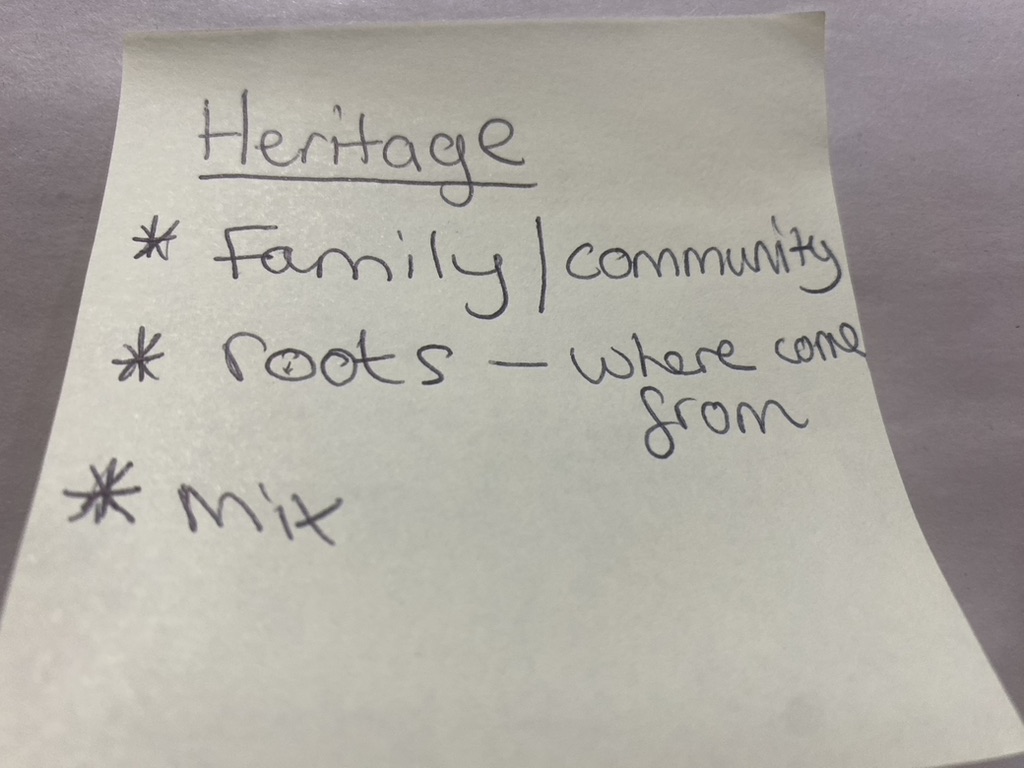 Heritage
* Family / community
* roots – where come
from
* Mix